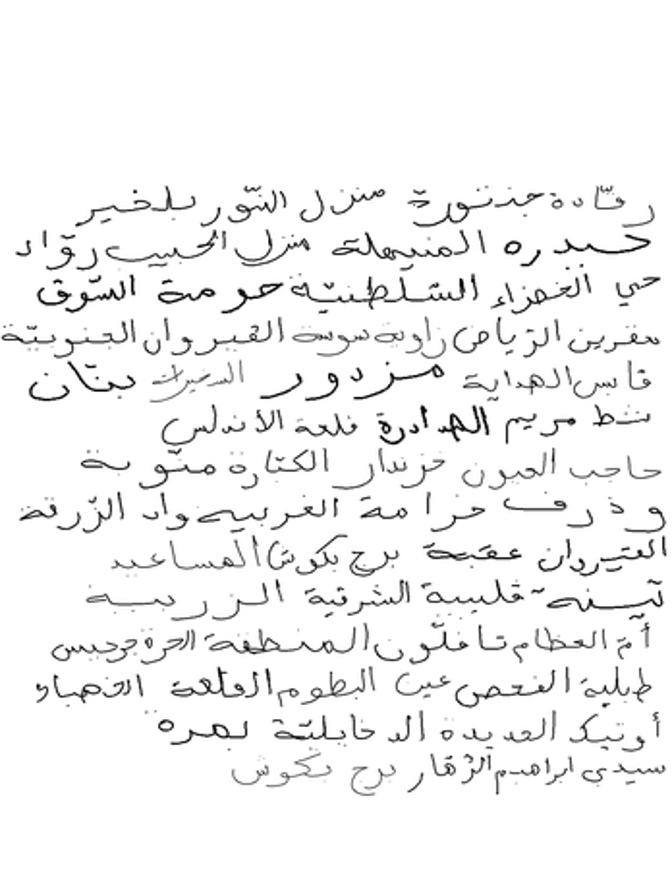 رقّادة جذنورة منزل النّور بلخير
حيدره المنيهلة منزل الحبيب روّاد
حي الخضراء السّلطنيّة حومة السّوق
مقرين الرّياض زاوية سوسة القيروان الجنوبيّة
قابس الهداية مزدور السخيرات بنّان
شط مريم الهدادرة قلعة الأندلس
حاجب العيون خزندار الكتّارة منّوبة
وذرف حزامة الغربيه واد الزّرقة
القيروان عقبة برج بكوش المساعيد
قليبية الشرقية الزريبة
أمّ العظام تافلّون المنطقة الحرة جرجيس
طبلبة الفحص عين البطوم القلعة الخصباء
أوتيك الجديده الدخايلتة بمرة
سيدي ابراهيم الزهار برج بكوش